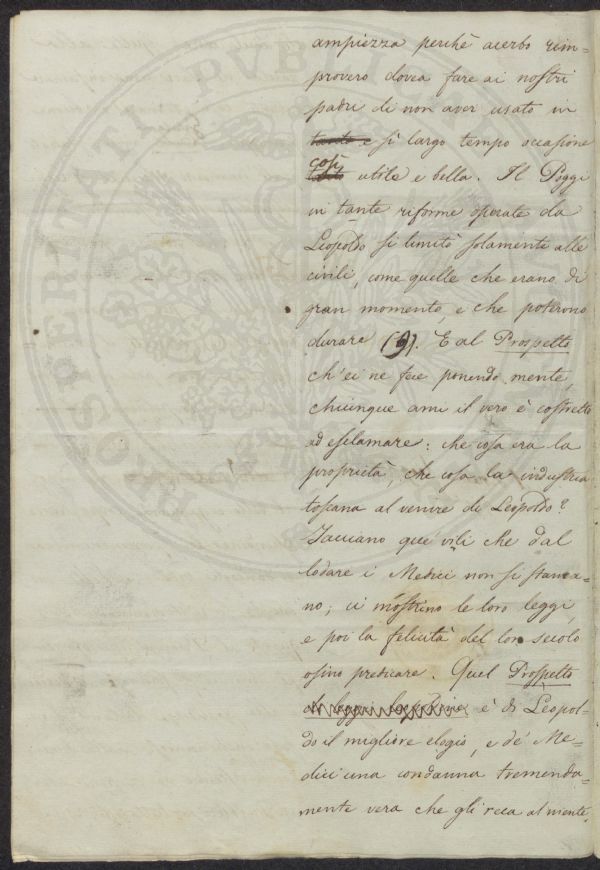 ampiezza perchè acerbo rim=
provero dovea fare ai nostri
padri di non aver usato in
tanto e sì largo tempo occasione
così
utile e bella. Il Poggi
in tante riforme operate da
Leopoldo si limitò solamente alle
civili, come quelle che erano di
gran momento, e che poterono
durare (9). E al Prospetto
ch'ei ne fece ponendo mente,
chiunque ami il vero è costretto
ad esclamare: che cosa era la
proprietà, che cosa la industria
toscana al venire di Leopoldo?
Tacciano que' vili che dal
lodare i Medici non si stanca=
no; ci mostrino le loro leggi,
e poi la felicità del loro secolo
osino predicare. Quel Prospetto
è di Leopol=
do il migliore elogio, e de' Me=
dici una condanna tremenda=
mente vera che gli reca al niente.
PROSPERITATI PUBLICAE